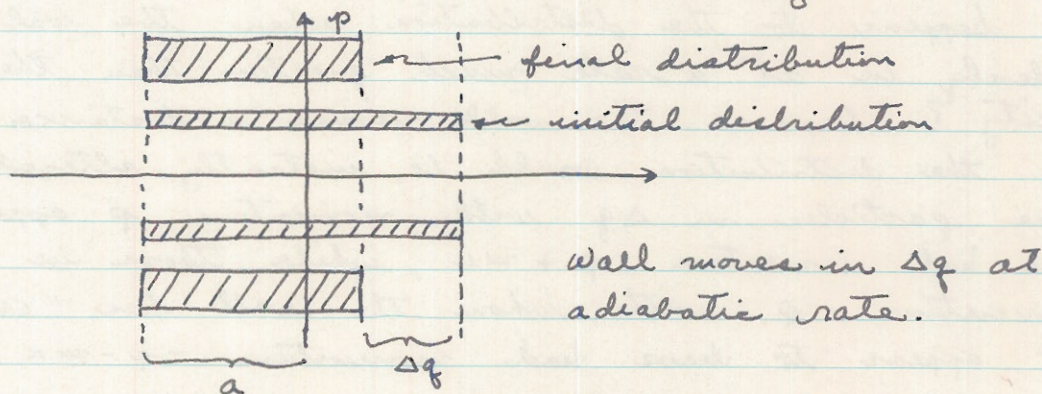 p
final distribution
initial distribution
wall moves in Δq at
adiabatic rate.
a
Δq